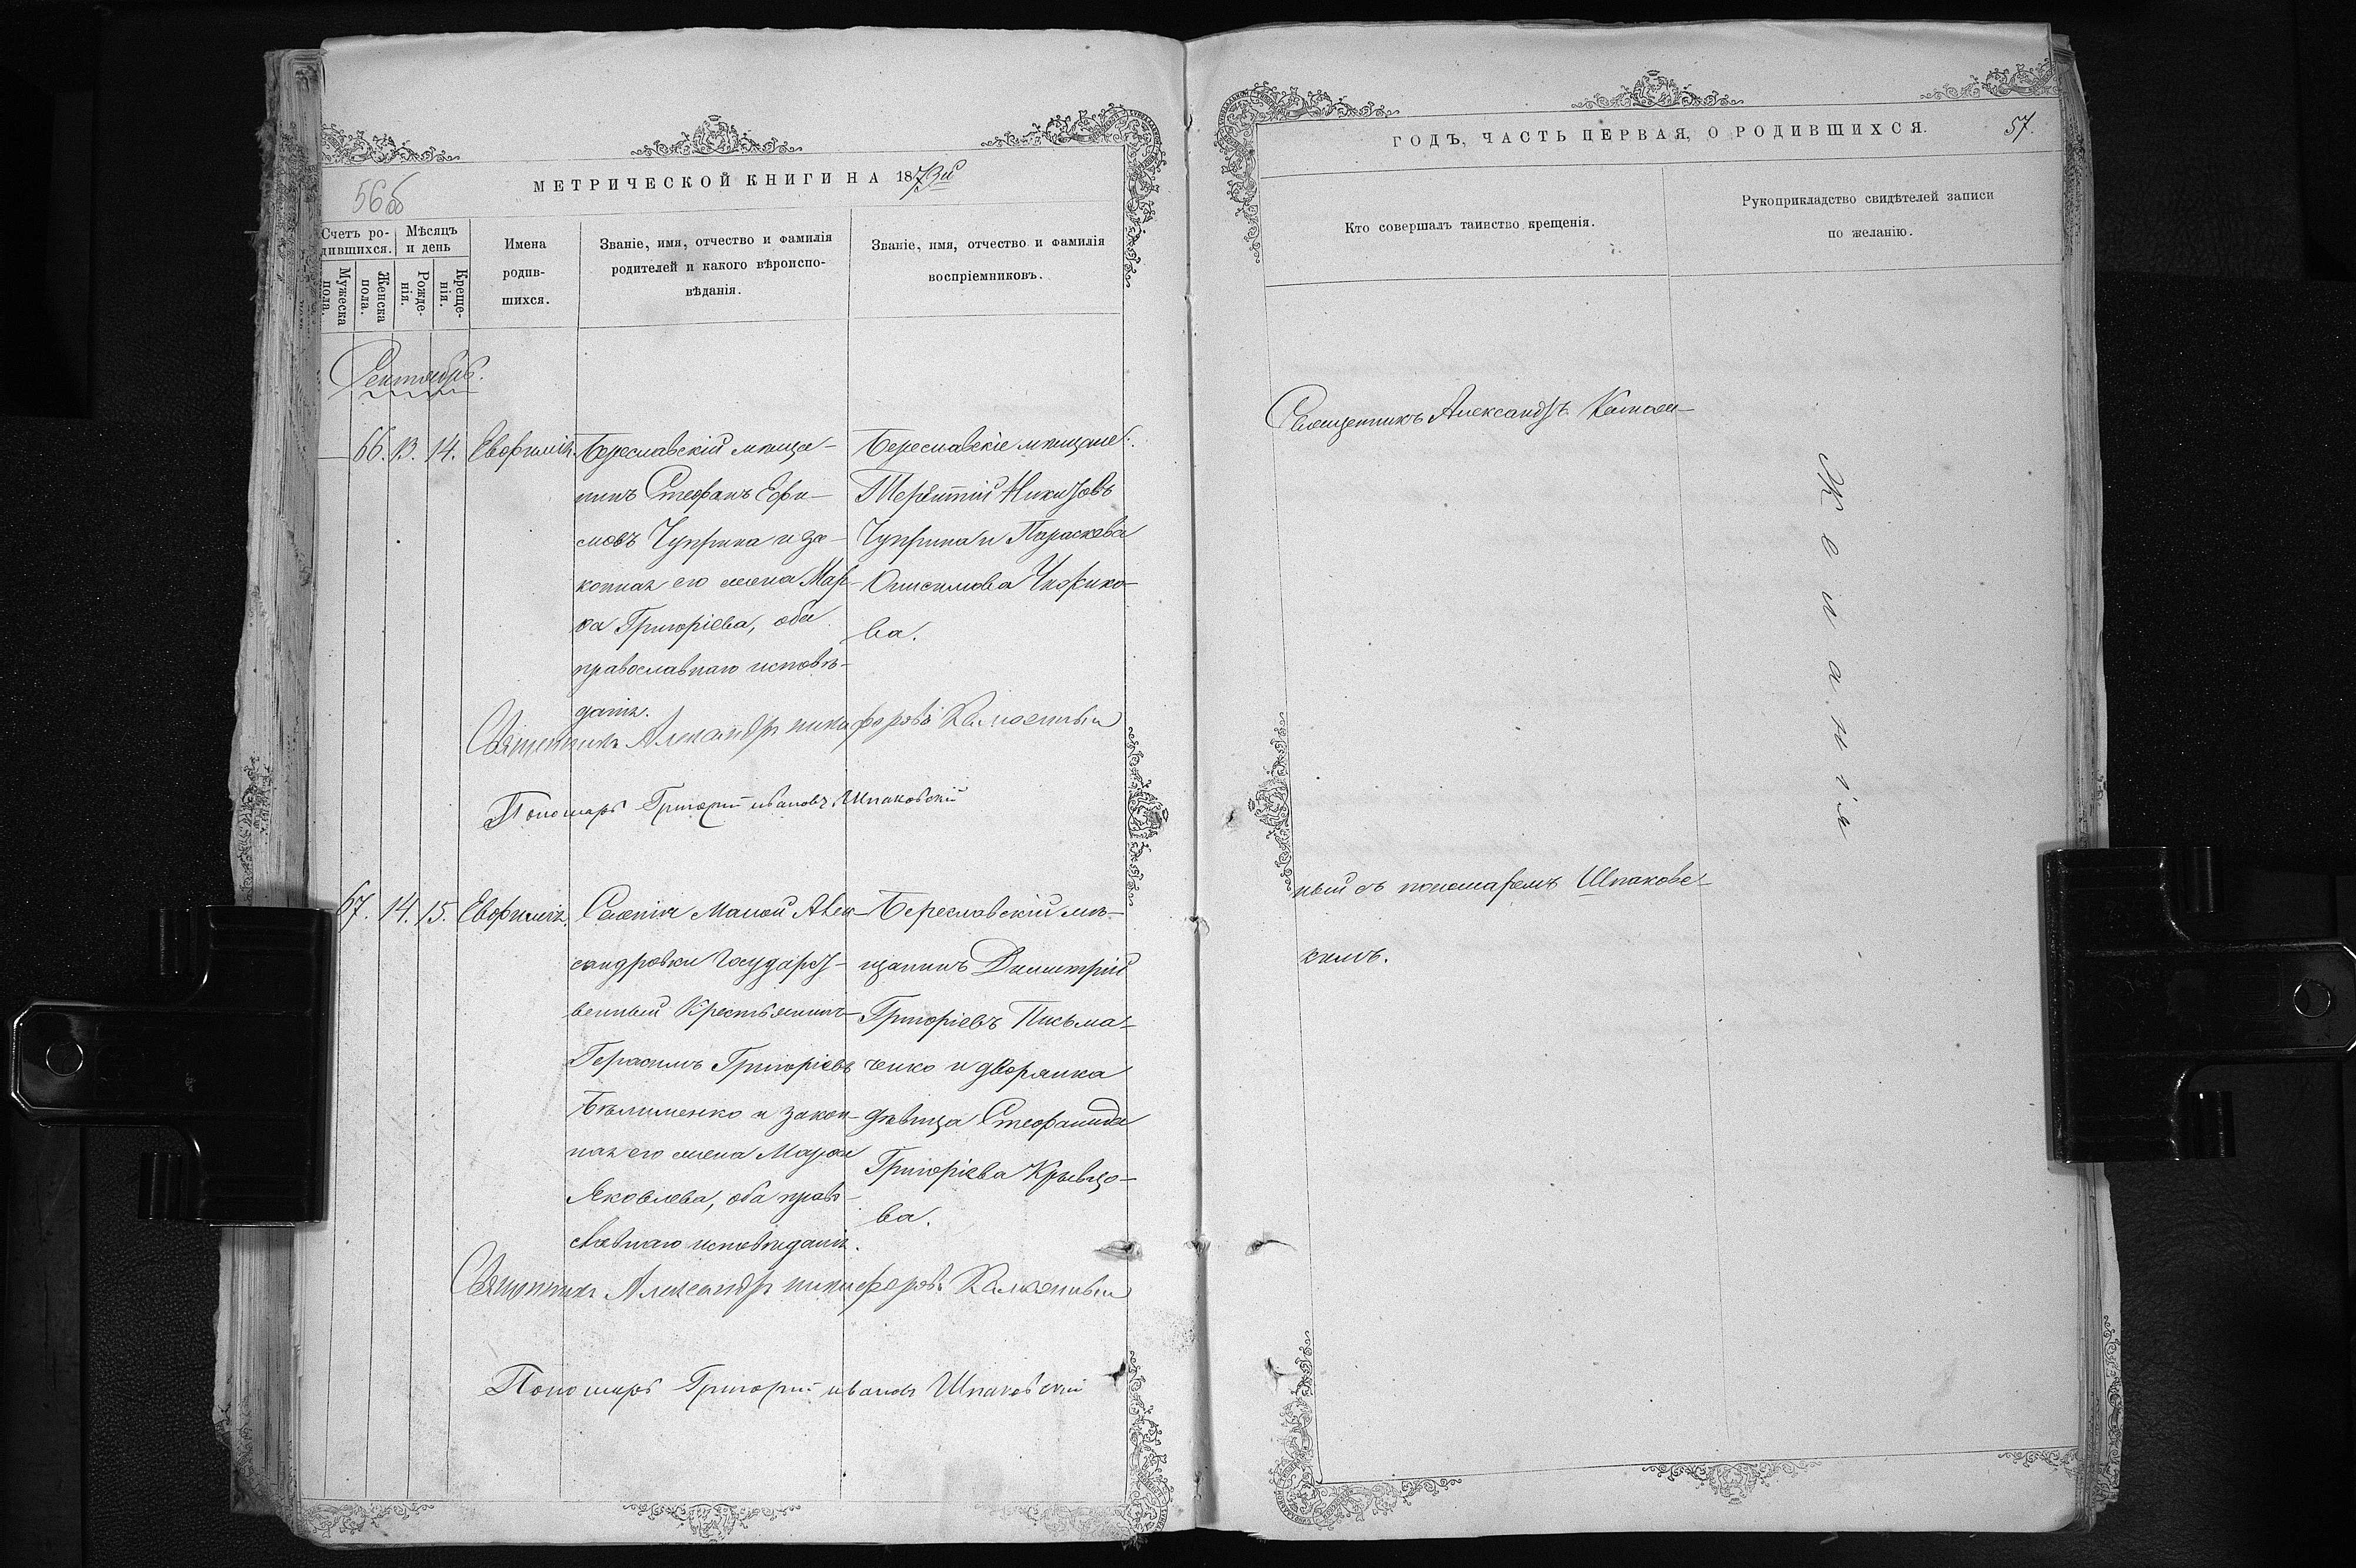 56об
МЕТРИЧЕСКОЙ КНИГИ НА 1873й
Счетъ ро-
дившихся.
Мѣсяцъ
и день
Мужеска
пола.
Женска
пола.
Рожде-
нія.
Креще-
нія.
Имена
родив-
шихся.
Званіе, имя, отчество и фамилія
родителей и какого вѣроиспо-
вѣданія.
Званіе, имя, отчество и фамилія
воспріемниковъ.
Сентябрь.
66. 13. 14. Евфимія.
Береславскій мѣща-
нинъ Стефанъ Ефи-
мовъ Чуприна и за-
конная его жена Мар-
ѳа Григоріева, оба
православнаго исповѣ-
данія.
Береславскіе мѣщане:
Терентій
Чуприна и Параскева
Онисимова
ва.
Священникъ Александръ никифоровъ Калюжный
Пономарь Григорій ивановъ Шпаковскій
67. 14. 15. Евфимія.
Селенія Малой Алек-
сандровки Государст-
венный Крестьянинъ
Герасимъ Григоріевъ
Бѣлименко и закон-
ная его жена Марѳа
Яковлева, оба право-
славнаго исповѣданія.
Береславскій мѣ-
щанинъ Димитрій
Григоріевъ Письма-
ченко и дворянка
дѣвица Стефанида
Григоріева Кривцо-
ва.
Священникъ Александръ никифоровъ Калюжный
Пономарь Григорій ивановъ Шпаковскій
ГОДЪ, ЧАСТЬ ПЕРВАЯ, О РОДИВШИХСЯ.
57.
Кто совершалъ таинство крещенія.
Рукоприкладство свидѣтелей записи
по желанію.
Священникъ Александръ Калюж-
ный съ пономаремъ Шпаковс-
кимъ.
Желанія